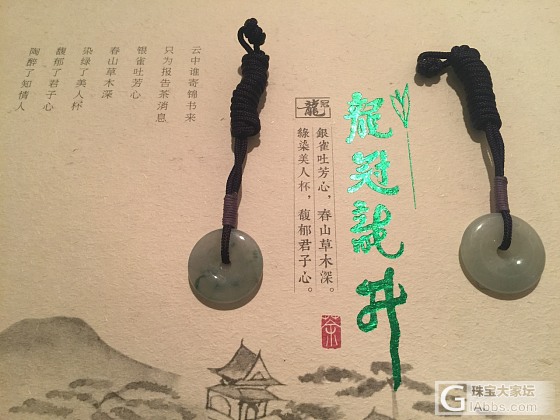 龍冠龍井
龍冠
銀雀吐芳心，春山草木深。
綠染美人杯，馥郁君子心。
茶
云中谁寄锦书来
只为报告茶消息
银雀吐芳心
春山草木深
染绿了美人杯
馥郁了君子心
陶醉了知情人
G 珠宝大家坛
GAbbs.com